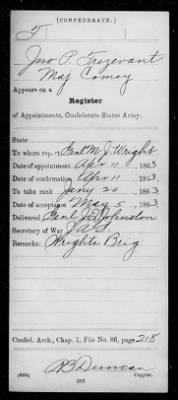 (CONFEDERATE.)
T
Jno P. Trezevant
Maj Comsy
Appears on a
Register
of Appointments, Confederate States Army.
State
To whom rep. Genl M J Wright
Date of appointment Apr 11, 1863
Date of confirmation Apr 11 1863
To take rank Jany 20, 1863
Date of acceptance May 5, 1863
Delivered Genl J E Johnston
Secretary of War J A S
Remarks: Wrights Brig
Confed. Arch., Chap. 1, File No. 86, page 218
R B Duncan
Copyist.